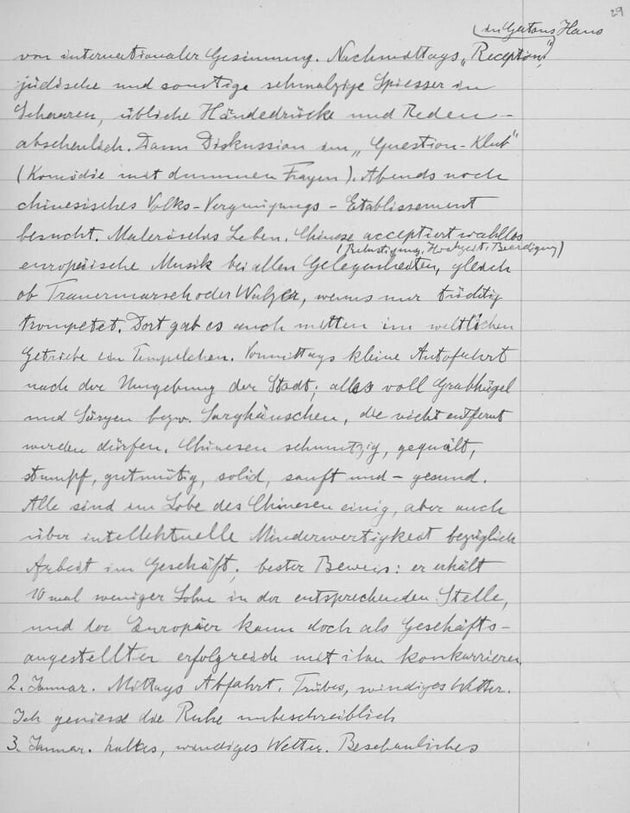 29
in Gatons Haus
von internationaler Gesinnung. Nachmittags „Reception",
jüdische und sonstige schmalzige Spiesser in
Scharen, übliche Händedrücke und Reden –
abscheulich. Dann Diskussion im „Question-Klub"
(Komödie mit dummen Fragen). Abends noch
chinesisches Volks-Vergnügungs-Etablissement
besucht. Malerisches Leben. Chinese acceptiert wahllos
(Belustigung, Hochzeit, Beerdigung)
europäische Musik bei allen Gelegenheiten, gleich
ob Trauermarsch oder Walzer, wenns nur tüchtig
trompetet. Dort gab es auch mitten im weltlichen
Getriebe ein Tempelchen. Vormittags kleine Autofahrt
nach der Umgebung der Stadt; alles voll Grabhügel
und Särgen bezw. Sarghäuschen, die nicht entfernt
werden dürfen. Chinesen schmutzig, gequält,
stumpf, gutmütig, solid, sanft und – gesund.
Alle sind im Lobe des Chinesen einig, aber auch
über intellektuelle Minderwertigkeit bezüglich
Arbeit im Geschäft; bester Beweis: er erhält
10 mal weniger Lohn in der entsprechenden Stelle,
und der Europäer kann doch als Geschäfts-
angestellter erfolgreich mit ihm konkurrieren.
2. Januar. Mittags Abfahrt. Trübes, windiges Wetter.
Ich geniesse die Ruhe unbeschreiblich
3. Januar. kaltes, windiges Wetter. Beschauliches